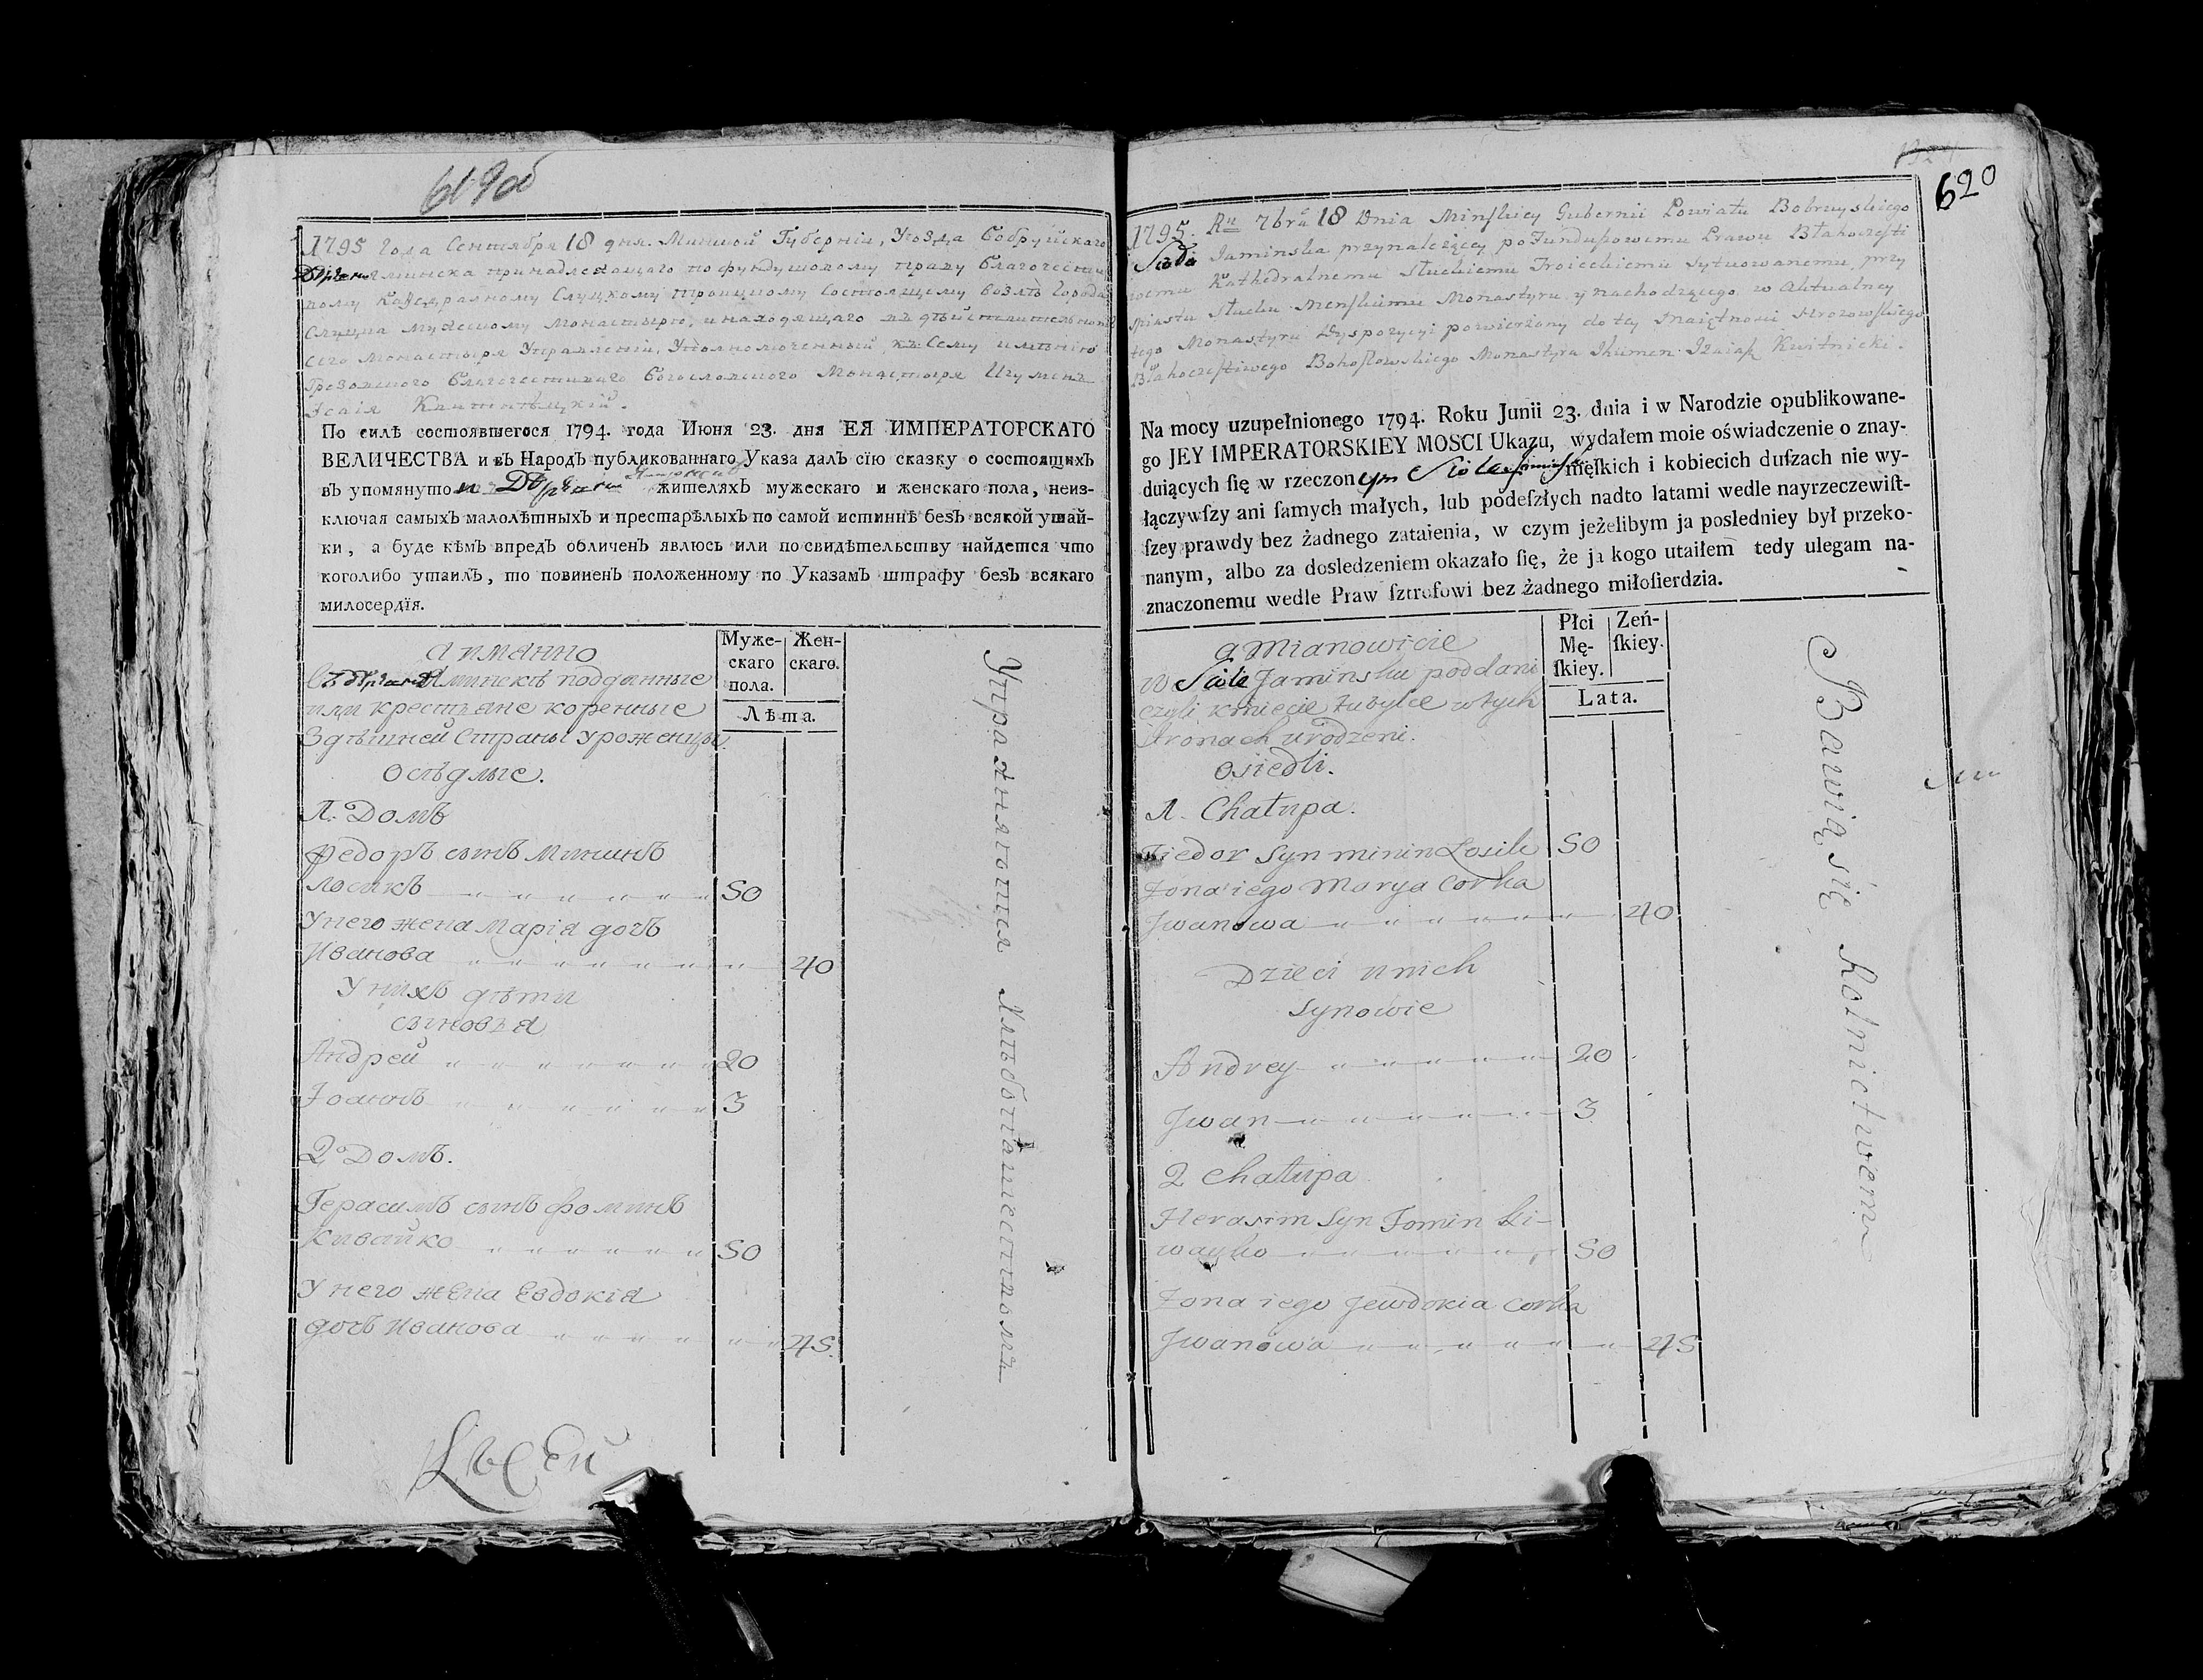 619об
1795 Года Сентября 18 дня. Минской Губерніи, Уѣзда Бобруйскаго
Деревни Яминска принадлежащаго по фундушовому праву Благочести
вому Каѳедральному Слуцкому Троицкому состоящему возлѣ Города
Слуцка мужескому Монастырю, и находящаго въ дѣйствительномъ
сего Монастыря Управленіи, Уполномоченный къ Сему имѣнію
Грозовского Благочестиваго Богословского Монастыря Игуменъ
Исаія
По силѣ состоявшегося 1794. года Июня 23. дня ЕЯ ИМПЕРАТОРСКАГО
ВЕЛИЧЕСТВА и въ Народъ публикованнаго Указа далъ сїю сказку о состоящихъ
въ упомянутой Деревни Яминскѣ жителяхъ мужескаго и женскаго пола, неиз-
ключая самыхъ малолѣтныхъ и престарѣлыхъ по самой истиннѣ безъ всякой утай-
ки, а буде кѣмъ впредъ обличенъ явлюсь или по свидѣтельству найдется что
коголибо утаилъ, то повиненъ положенному по Указамъ штрафу безъ всякаго
милосердїя.
Муже-
скаго
пола.
Жен-
скаго.
Лѣта.
а имянно
въ деревнѣ Яминскѣ подданные
или крестьяне коренные
Здѣшней Страны уроженцы
Осѣдлые.
1. Домъ
Федоръ сынъ Мининъ
Лосикъ 50
У него жена Марія дочь
Иванова 40
У нихъ дѣти
сыновья
Андрей 20
Іоаннъ 3
2º Домъ.
Герасимъ сынъ Фоминъ
Кивайко 50
У него жена Евдокія
дочь Иванова 45
Упражняются Хлѣбопашествомъ
620
1795. Ru 7bra 18 Dnia Minskiey Gubernii Powiatu Bobruyskiego
Sioła Jaminska przynależącey po Funduszowemu Prawu Błahoczesti
wemu Kathedralnemu Słuckiemu Troieckiemu Sytuowanemu, przy
Miastu Słucku Menskiemu Monastyru y nachodzącego w Aktualney
tego Monastyru Dyspozycyi powierzony do tey Maiętnosci Hrozowskiego
Błahoczestiwego Bohosłowskiego Monastyra Ihumen Izaiasz Kwitnicki.
Na mocy uzupełnionego 1794. Roku Junii 23. dnia i w Narodzie opublikowane-
go JEY IMPERATORSKIEY MOSCI Ukazu, wydałem moie oświadczenie o znay-
duiących ſię w rzeczonym Siole Jaminsku męſkich i kobiecich duſzach nie wy-
łączywſzy ani ſamych małych, lub podeſzłych nadto latami wedle nayrzeczewiſt-
ſzey prawdy bez żadnego zataienia, w czym jeżelibym ja posledniey był przeko-
nanym, albo za dosledzeniem okazało ſię, że ja kogo utaiłem tedy ulegam na-
znaczonemu wedle Praw ſztrofowi bez żadnego miłoſierdzia.
Płci
Mę-
ſkiey.
Zeń-
ſkiey.
Lata.
a Mianowicie
w Siole Jaminsku poddani
czyli kmiecie tubylce w tych
stronach urodzeni.
Osiedli.
1. Chałupa.
Fiedor Syn minin Losik 50
Zona iego Marya Corka
Jwanowa 40
Dzieci u nich
Synowie
Andrey 20
Jwan 3
2 Chałupa
Herasim Syn Fomin Ki-
wayko 50
Zona iego Jewdokia Corka
Jwanowa 45
Bawią się Rolnictwem